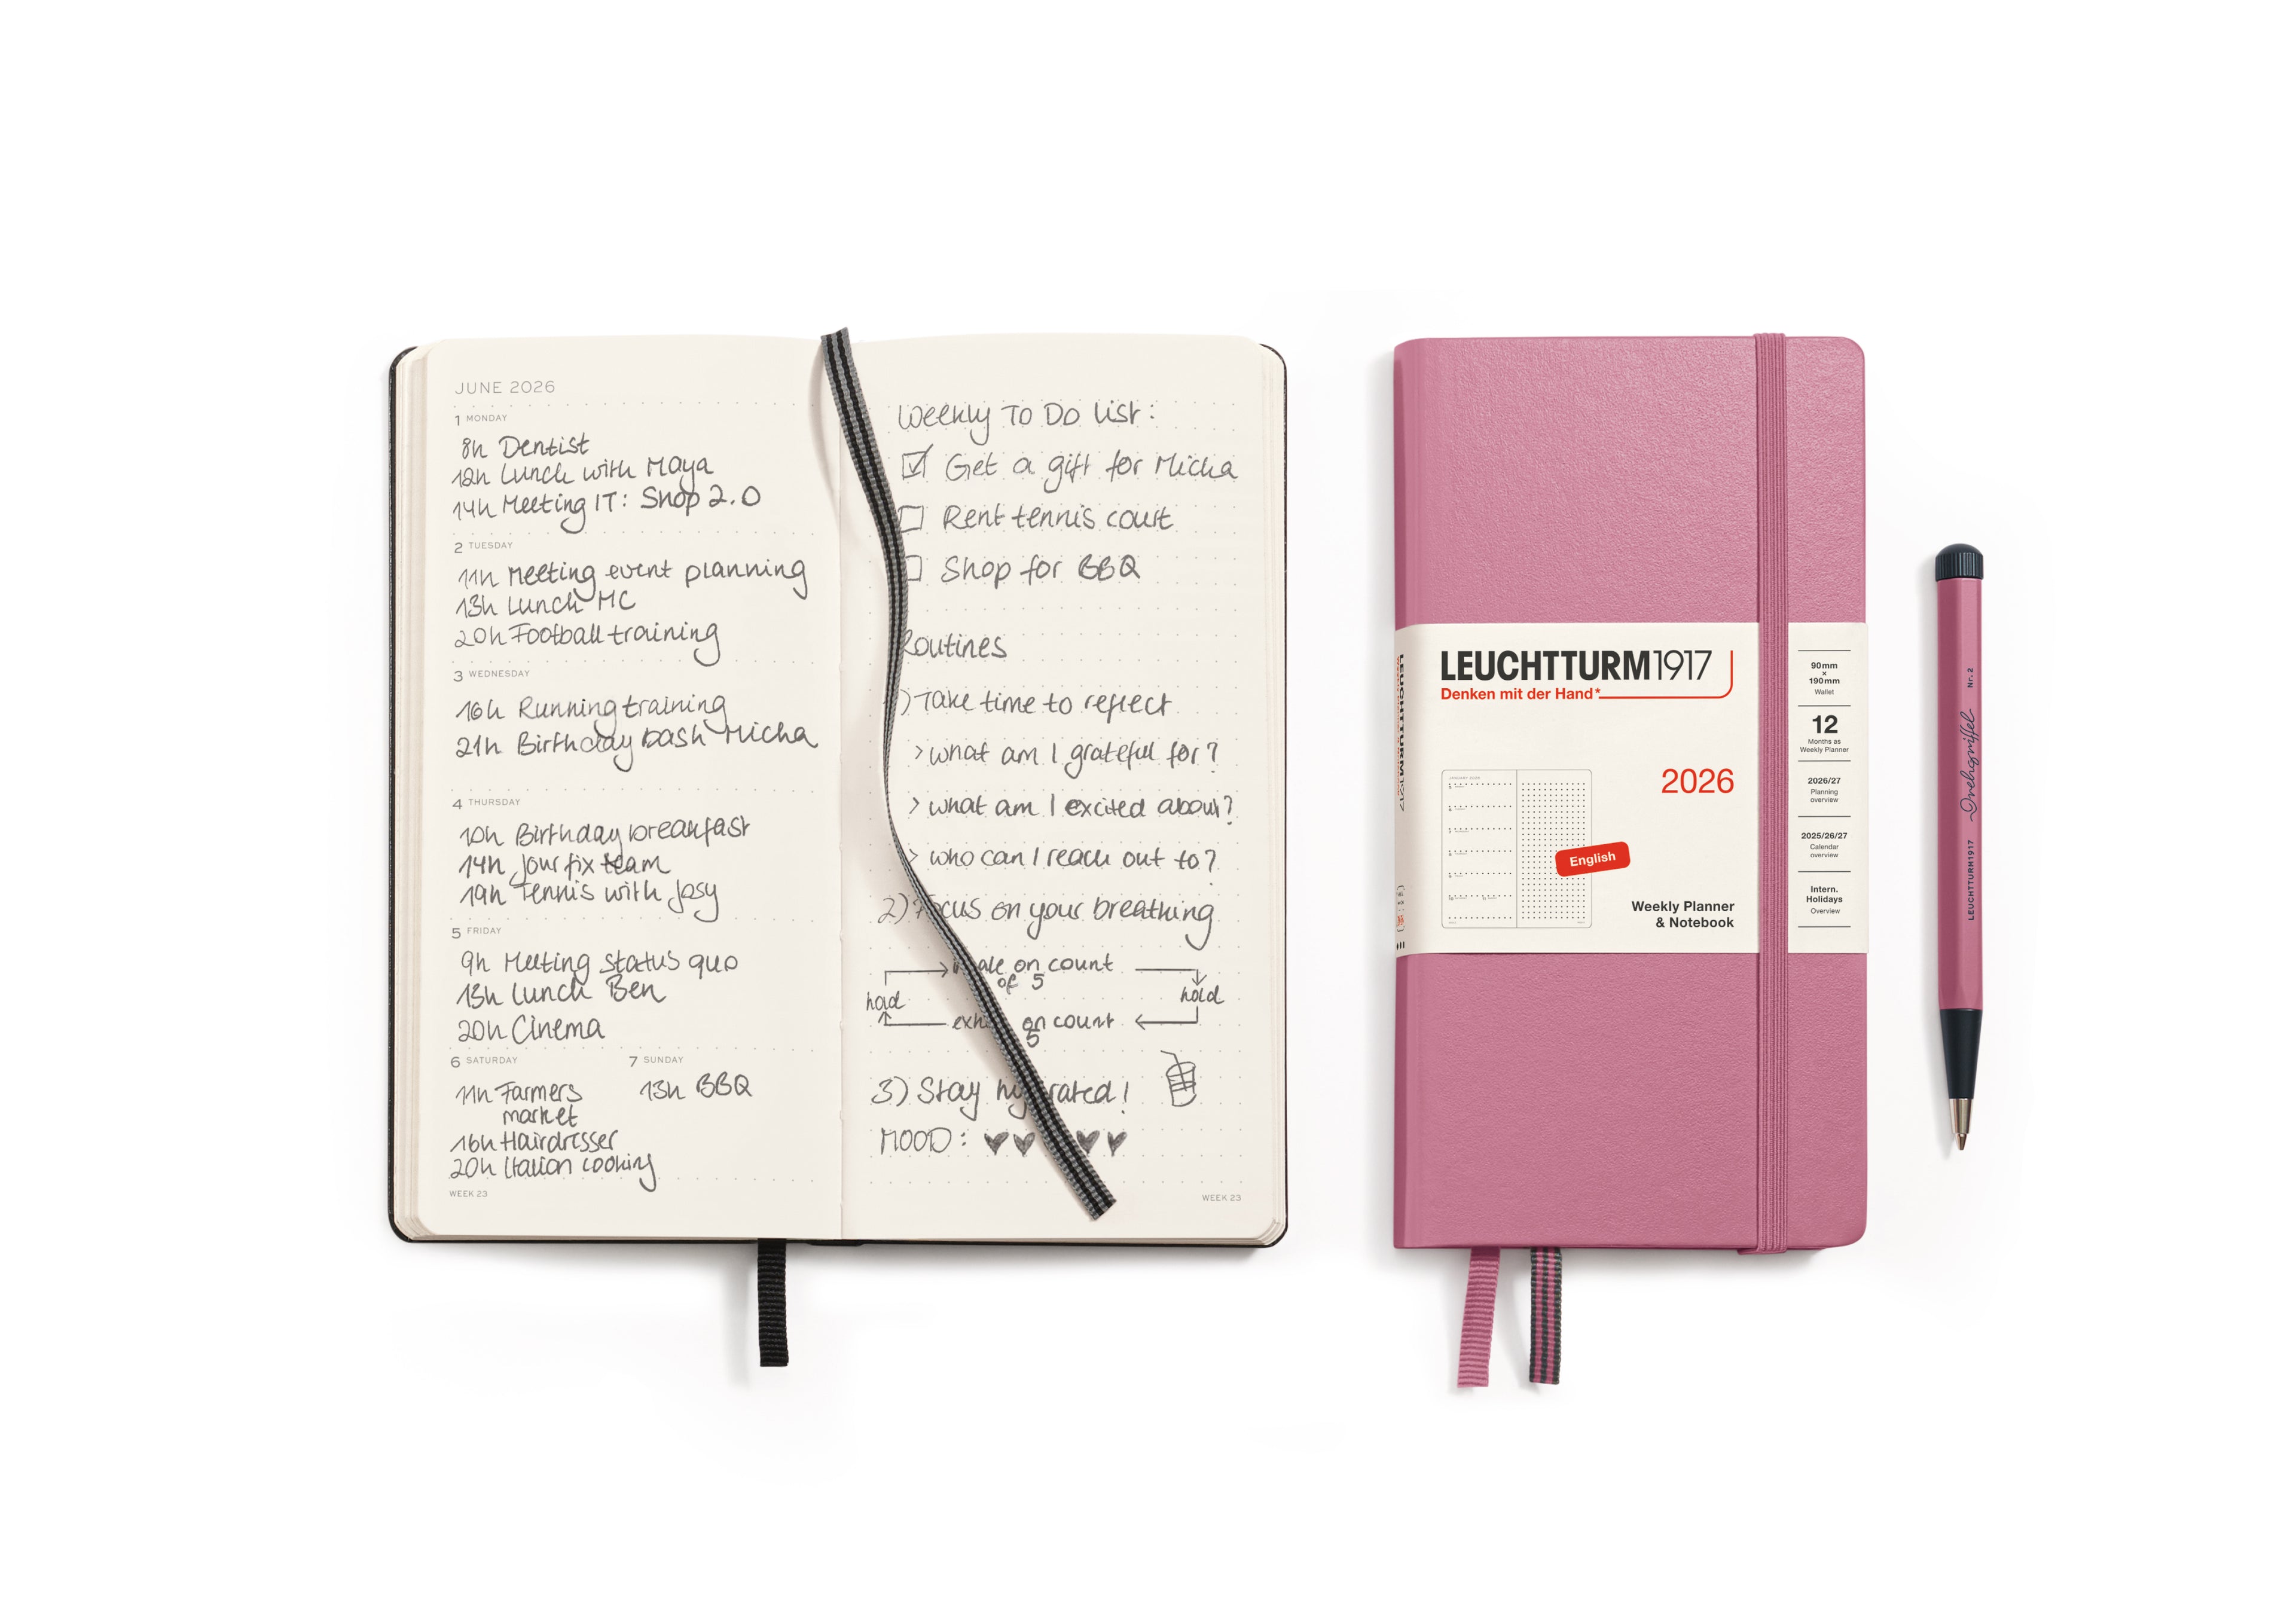 JUNE 2026
1 MONDAY
8h Dentist
12h Lunch with Maya
14h Meeting IT: Shop 2.0
2 TUESDAY
11h Meeting event planning
13h Lunch MC
20h Football training
3 WEDNESDAY
16h Running training
21h Birthday bash Micha
4 THURSDAY
10h Birthday breakfast
14h Jour fix team
19h Tennis with Josy
5 FRIDAY
9h Meeting status quo
13h Lunch Ben
20h Cinema
6 SATURDAY
11h Farmers
market
16h Hairdresser
20h Italian cooking
7 SUNDAY
13h BBQ
WEEK 23
Weekly To Do List:
Get a gift for Micha
Rent tennis court
Shop for BBQ
Routines
) Take time to reflect
> what am I grateful for?
> what am I excited about?
> who can I reach out to?
2) Focus on your breathing
on count
of 5
hold
hold
on count
5
3) Stay hydrated!
MOOD:
WEEK 23
LEUCHTTURM1917
LEUCHTTURM1917
Denken mit der Hand*
JANUARY 2026
2026
English
Weekly Planner
& Notebook
90mm
×
190mm
Wallet
12
Months as
Weekly Planner
2026/27
Planning
overview
2025/26/27
Calendar
overview
Intern.
Holidays
Overview
LEUCHTTURM1917 Drehgriffel Nr. 2